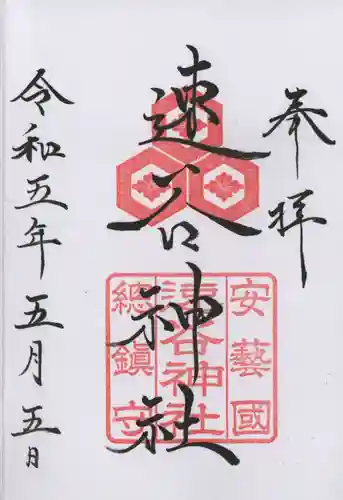 奉拝
速谷神社
安藝國
速谷神社
總鎮守
令和五年五月五日